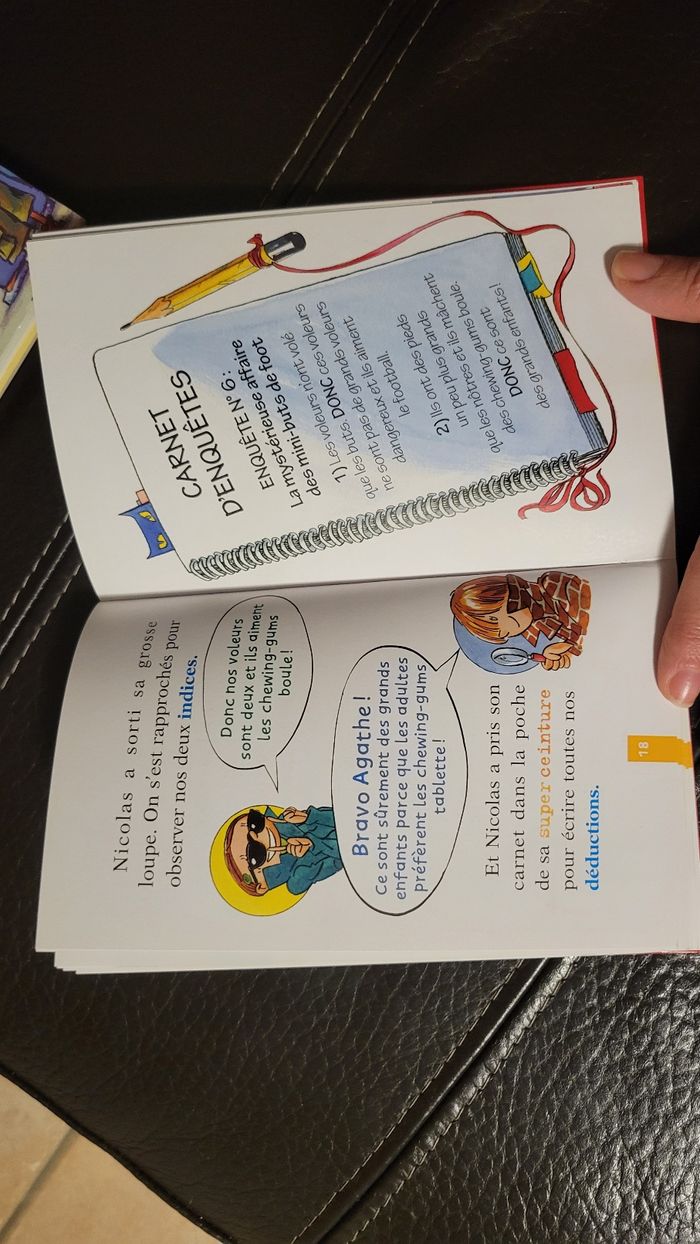 Nicolas a sorti sa grosse
loupe. On s'est rapprochés pour
observer nos deux indices.
Donc nos voleurs
sont deux et ils aiment
les chewing-gums
boule !
Bravo Agathe !
Ce sont sûrement des grands
enfants parce que les adultes
préfèrent les chewing-gums
tablette !
Et Nicolas a pris son
carnet dans la poche
de sa super ceinture
pour écrire toutes nos
déductions.
18
CARNET
D'ENQUÊTES
ENQUÊTE N° 6 :
La mystérieuse affaire
des mini-buts de foot
1) Les voleurs n'ont volé
que les buts, DONC ces voleurs
ne sont pas de grands voleurs
dangereux et ils aiment
le football.
2) Ils ont des pieds
un peu plus grands
que les nôtres et ils mâchent
des chewing gums boule.
DONC ce sont
des grands enfants !